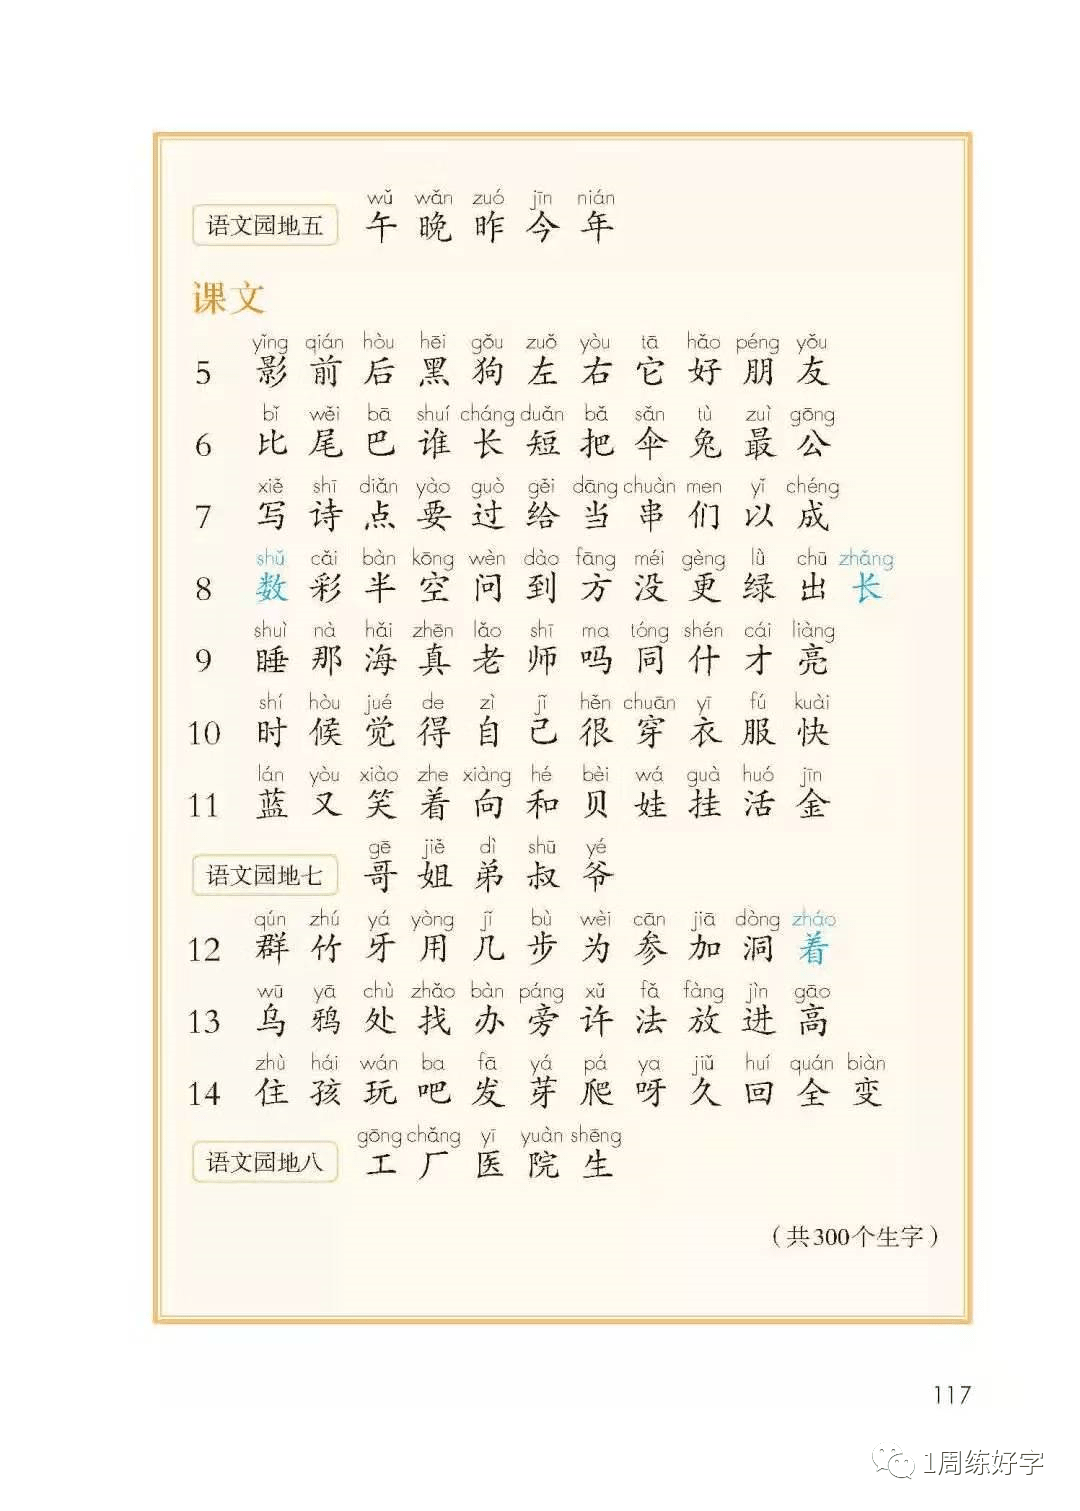 wǔ wǎn zuó jīn nián
语文园地五 午 晚 昨 今 年
课文
yǐng qián hòu hēi gǒu zuǒ yòu tā hǎo péng yǒu
5 影 前 后 黑 狗 左 右 它 好 朋 友
bǐ wěi bā shuí cháng duǎn bǎ sǎn tù zuì gōng
6 比 尾 巴 谁 长 短 把 伞 兔 最 公
xiě shī diǎn yào guò gěi dāng chuàn men yǐ chéng
7 写 诗 点 要 过 给 当 串 们 以 成
shǔ cǎi bàn kōng wèn dào fāng méi gèng lǜ chū zhǎng
8 数 彩 半 空 问 到 方 没 更 绿 出 长
shuì nà hǎi zhēn lǎo shī ma tóng shén cái liàng
9 睡 那 海 真 老 师 吗 同 什 才 亮
shí hòu jué de zì jǐ hěn chuān yī fú kuài
10 时 候 觉 得 自 己 很 穿 衣 服 快
lán yòu xiào zhe xiàng hé bèi wá guà huó jīn
11 蓝 又 笑 着 向 和 贝 娃 挂 活 金
gē jiě dì shū yé
语文园地七 哥 姐 弟 叔 爷
qún zhú yá yòng jǐ bù wèi cān jiā dòng zháo
12 群 竹 牙 用 几 步 为 参 加 洞 着
wū yā chù zhǎo bàn páng xǔ fǎ fàng jìn gāo
13 乌 鸦 处 找 办 旁 许 法 放 进 高
zhù hái wán ba fā yá pá ya jiǔ huí quán biàn
14 住 孩 玩 吧 发 芽 爬 呀 久 回 全 变
gōng chǎng yī yuàn shēng
语文园地八 工 厂 医 院 生
（共300个生字）
117
1周练好字